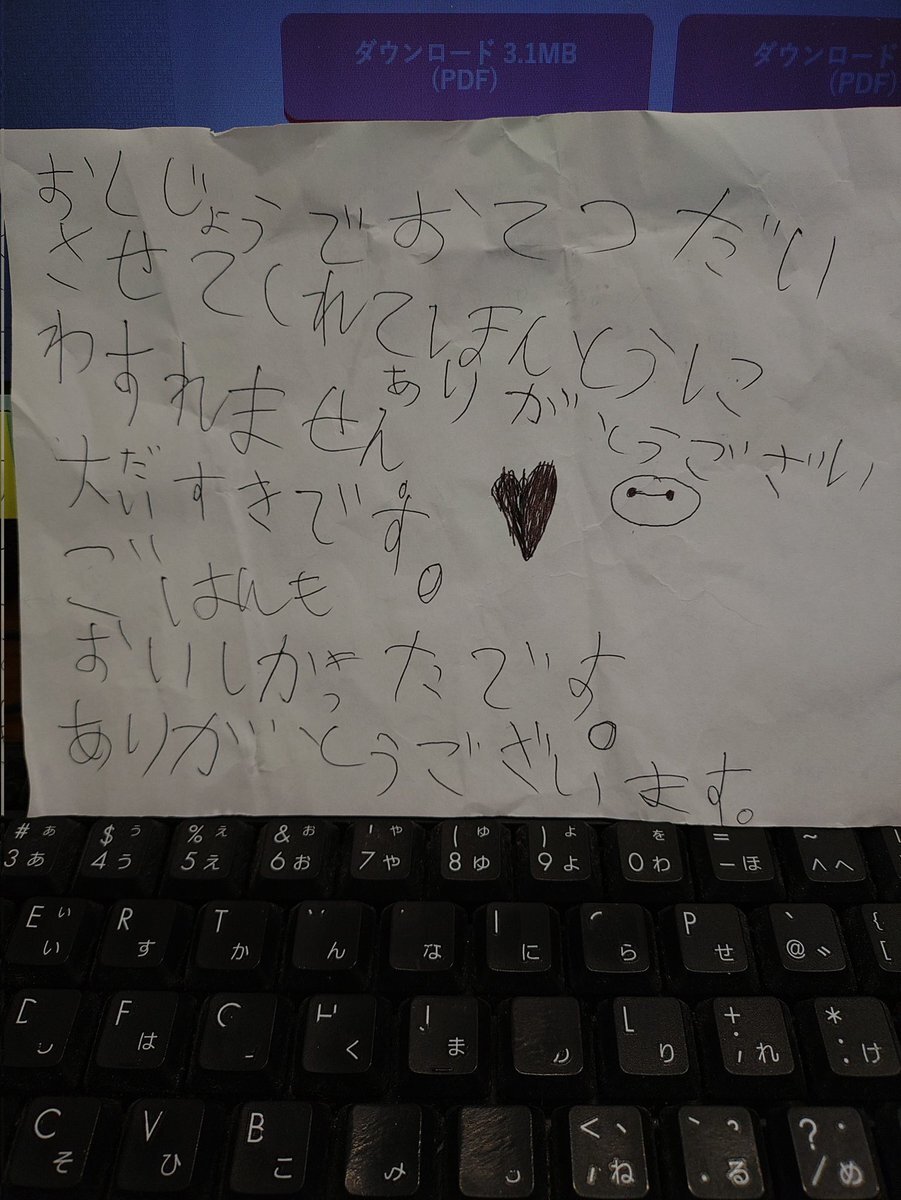 ダウンロード 3.1MB
(PDF)
ダウンロード
(PDF)
おしじょうでおてつだい
させてくれてほんとうに
ありがとうござい
わすれません。
大だいすきです。
ごはんも
おいしかったです。
ありがとうございます。
# ぁ $ ぅ % ぇ & ぉ ' ゃ ( ゅ ) ょ を = ~
3 あ 4 う 5 え 6 お 7 や 8 ゆ 9 よ 0 わ - ほ ^ へ
E ぃ R T P ` {
い す か ん な に ら せ @ ゛ [
F L + *
は く ま り ; れ : け
C V B < 、 ? ・
そ ひ こ み ね . る / め